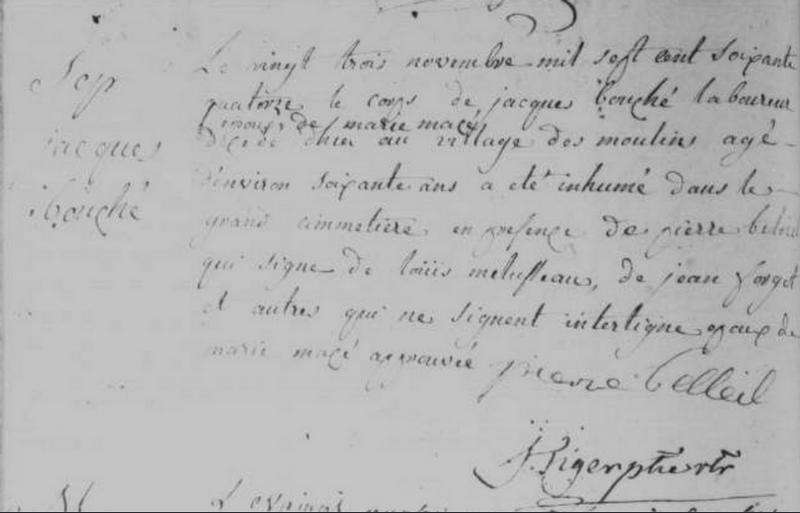 Sep
jacques
Bouché
Le vingt trois novembre mil sept cent soixante
quatorze le corps de jacques bouché laboureur
epoux de marie macé
décédé hier au village des moulins agé
d'environ soixante ans a eté inhumé dans le
grand cimmetiere en presence de pierre
qui signe de loüis de jean forget
et autres qui ne signent interligne epoux de
marie macé approuvée pierre belleil